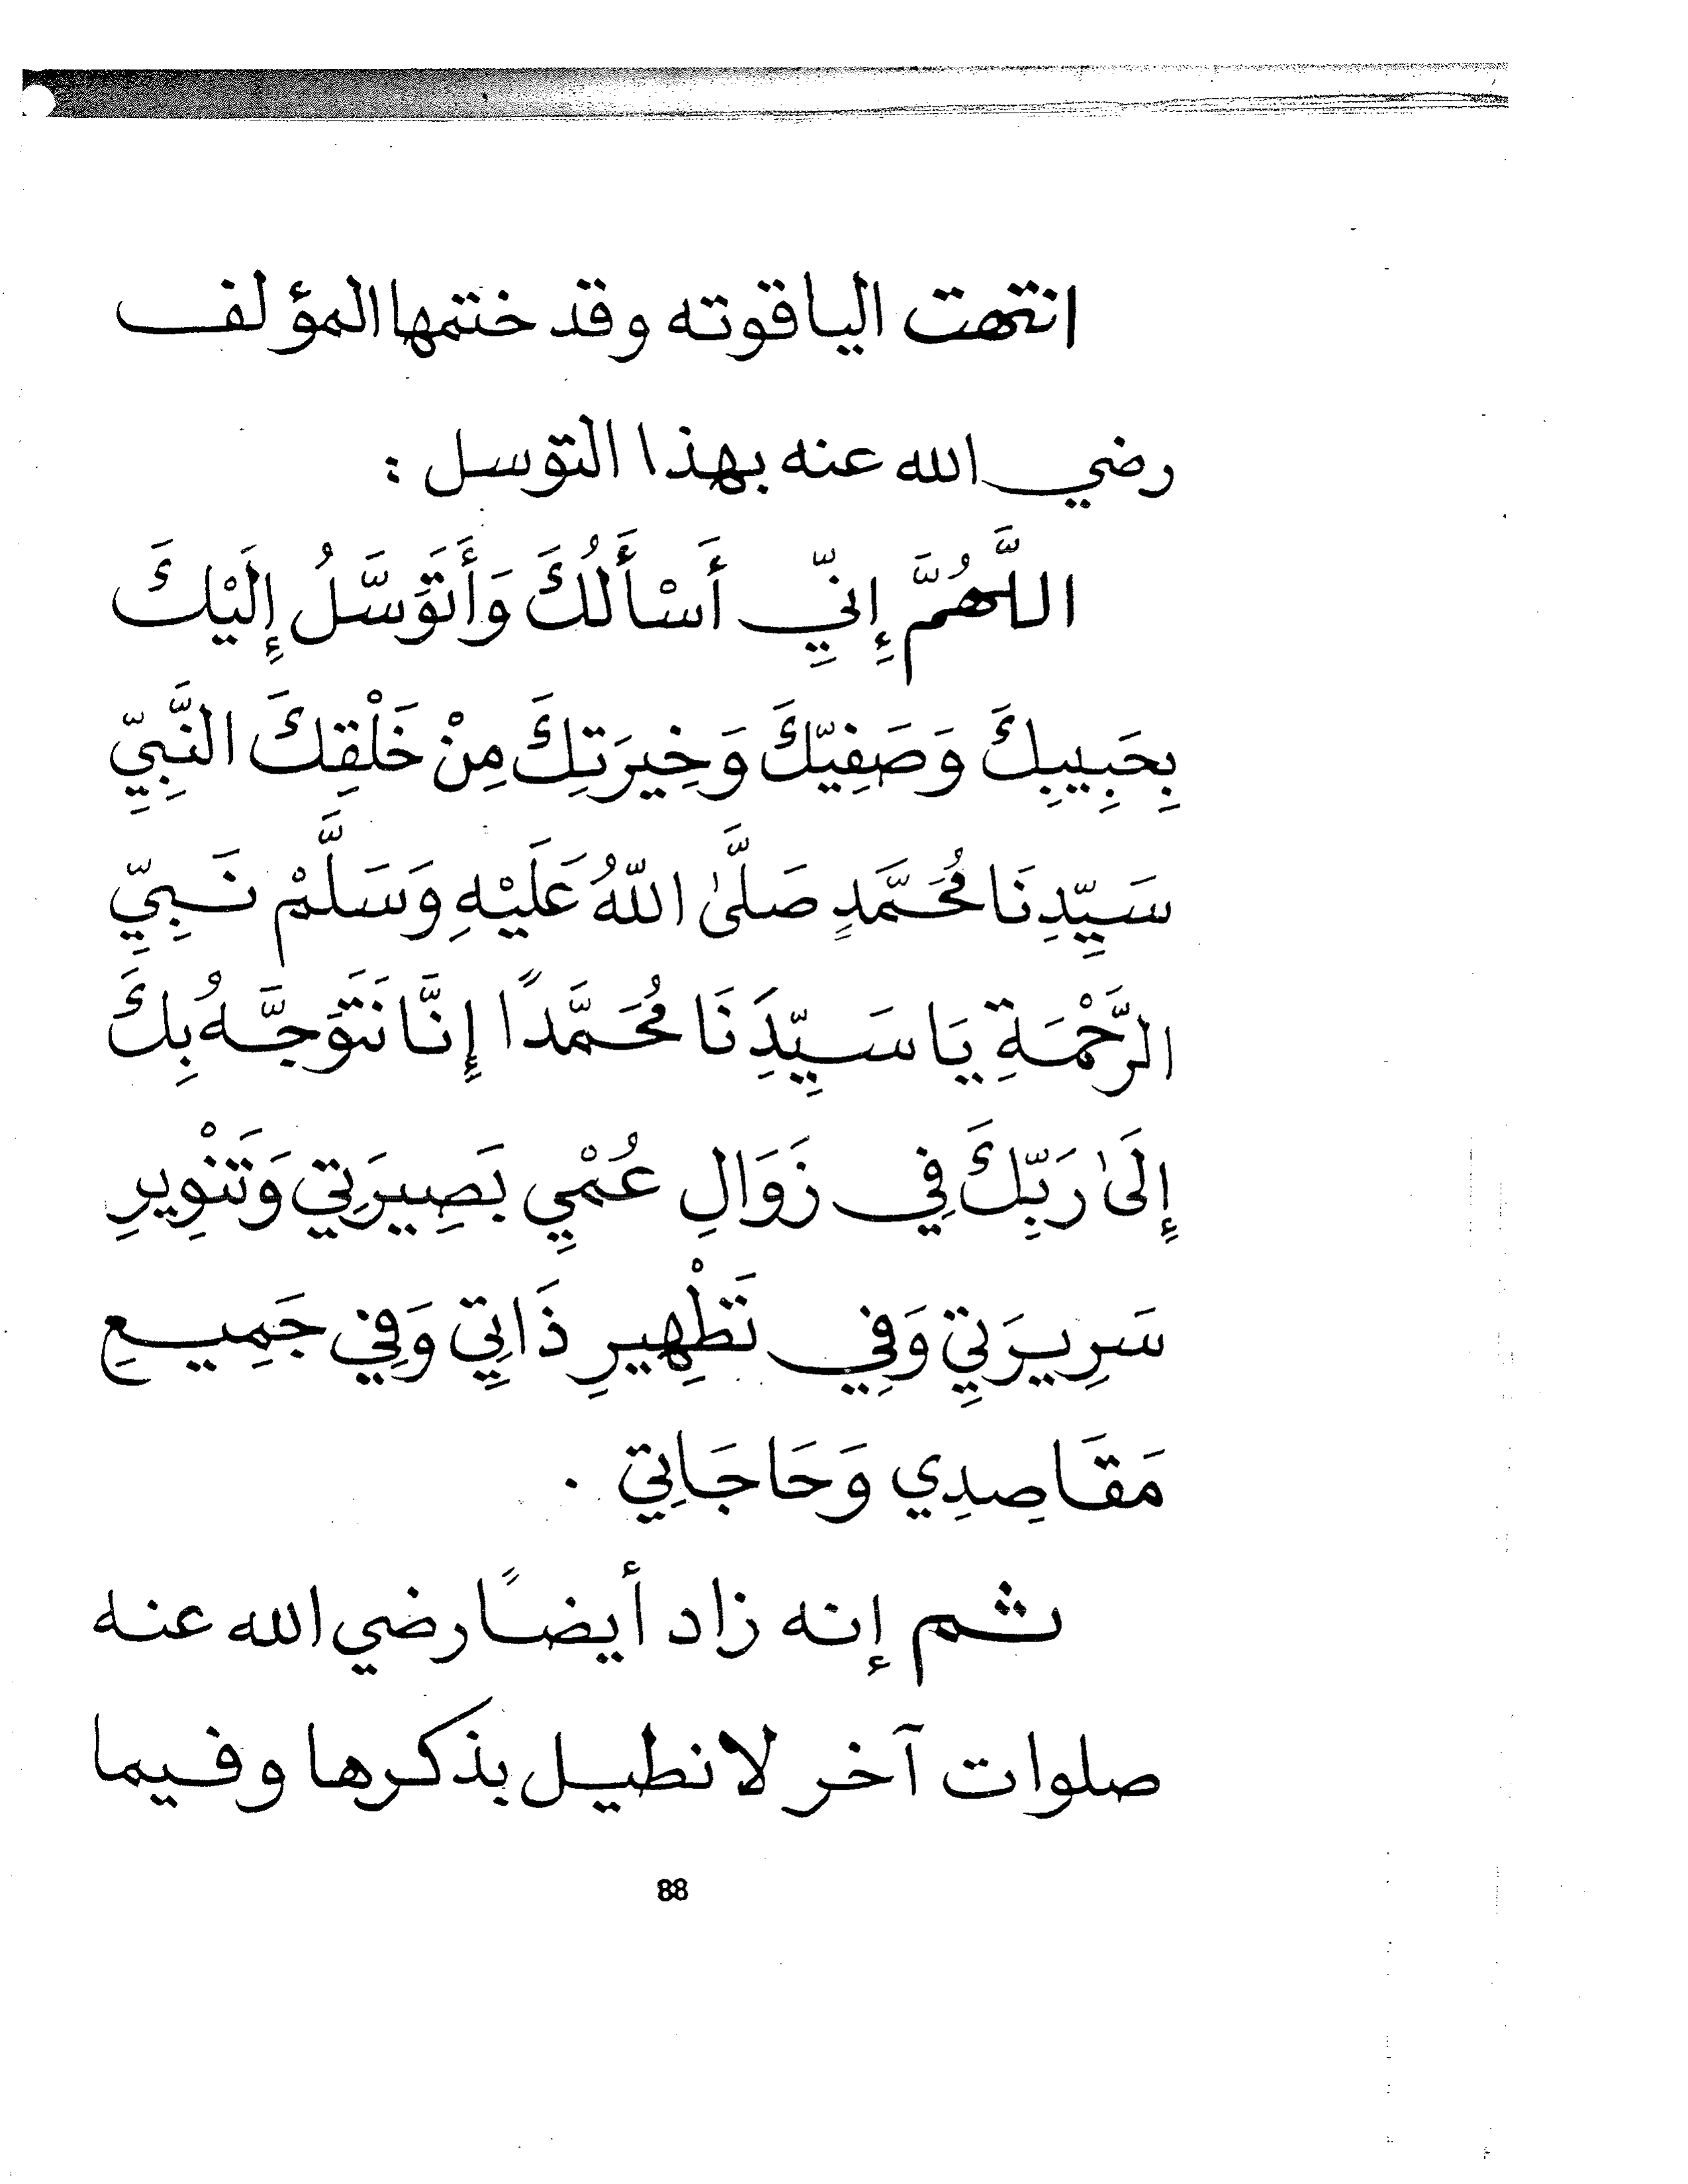 انتهت الياقوته وقد ختمها المؤلف
رضي الله عنه بهذا التوسل :
اللَّهُمَّ إِنِّي أَسْأَلُكَ وَأَتَوَسَّلُ إِلَيْكَ
بِحَبِيبِكَ وَصَفِيّكَ وَخِيرَتِكَ مِنْ خَلْقِكَ النَّبِيِّ
سَيِّدِنَا مُحَمَّدٍ صَلَّىٰ اللهُ عَلَيْهِ وَسَلَّمْ نَبِيِّ
الرَّحْمَةِ يَا سَيِّدَنَا مُحَمَّدًا إِنَّا نَتَوَجَّهُ بِكَ
إِلَىٰ رَبِّكَ فِي زَوَالِ عُمْيِ بَصِيرَتِي وَتَنْوِيرِ
سَرِيرَتِي وَفِي تَطْهِيرِ ذَاتِي وَفِي جَمِيعِ
مَقَاصِدِي وَحَاجَاتِي .
ثم إنه زاد أيضًا رضي الله عنه
صلوات آخر لا نطيل بذكرها وفيما
88